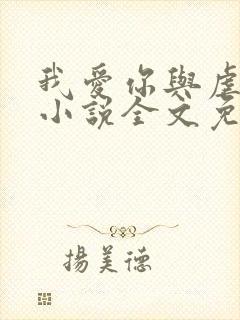 我愛你與虐
小說全文免
揚美德